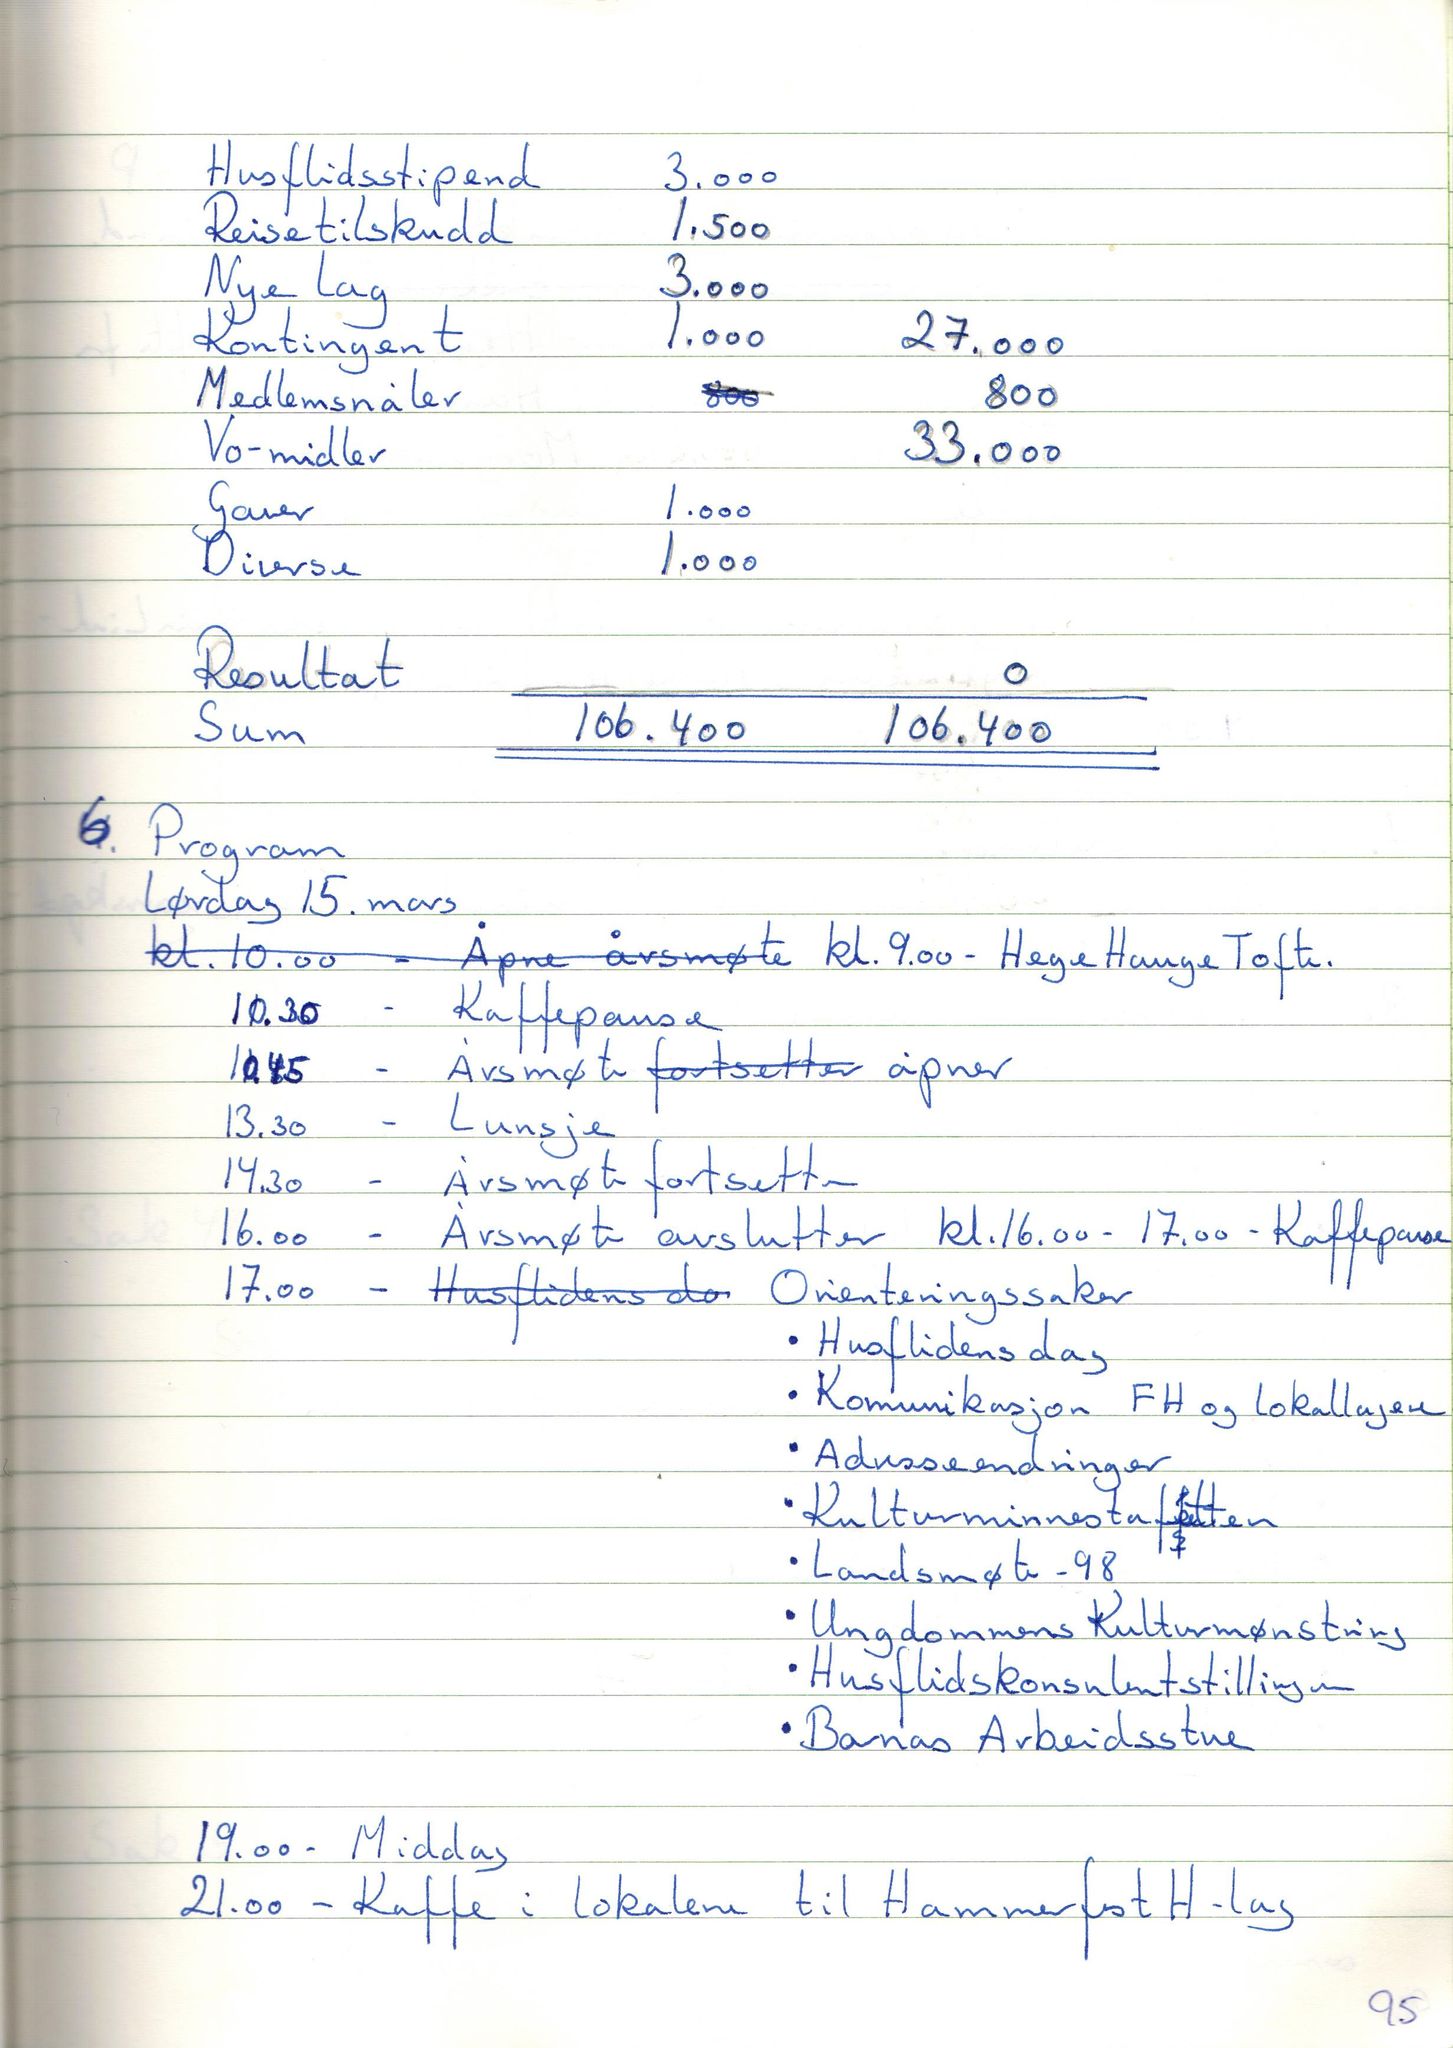 Husflidsstipend 3.000
Reisetilskudd 1.500
Nye lag 3.000
Kontingent 1.000 27.000
Medlemsnåler 800 800
Vo-midler 33.000
Gaver 1.000
Diverse 1.000
Resultat 0
Sum 106.400 106.400
6. Program
Lørdag 15. mars
kl. 10.00 - Åpne årsmøte kl. 9.00 - Hege Hauge Tofte.
10.30 - Kaffepause
10.45 - Årsmøte fortsetter åpner
13.30 - Lunsje
14.30 - Årsmøte fortsetter
16.00 - Årsmøte avslutter kl. 16.00 - 17.00 - Kaffepause
17.00 - Husflidens da Orienteringssaker
• Husflidens dag
• Komunikasjon FH og lokallagene
• Adresseendringer
• Kulturminnestafetten
• Landsmøte -98
• Ungdommens Kulturmønstring
• Husflidskonsulentstillingen
• Barnas Arbeidsstue
19.00 - Middag
21.00 - Kaffe i lokalene til Hammerfest H-lag
95